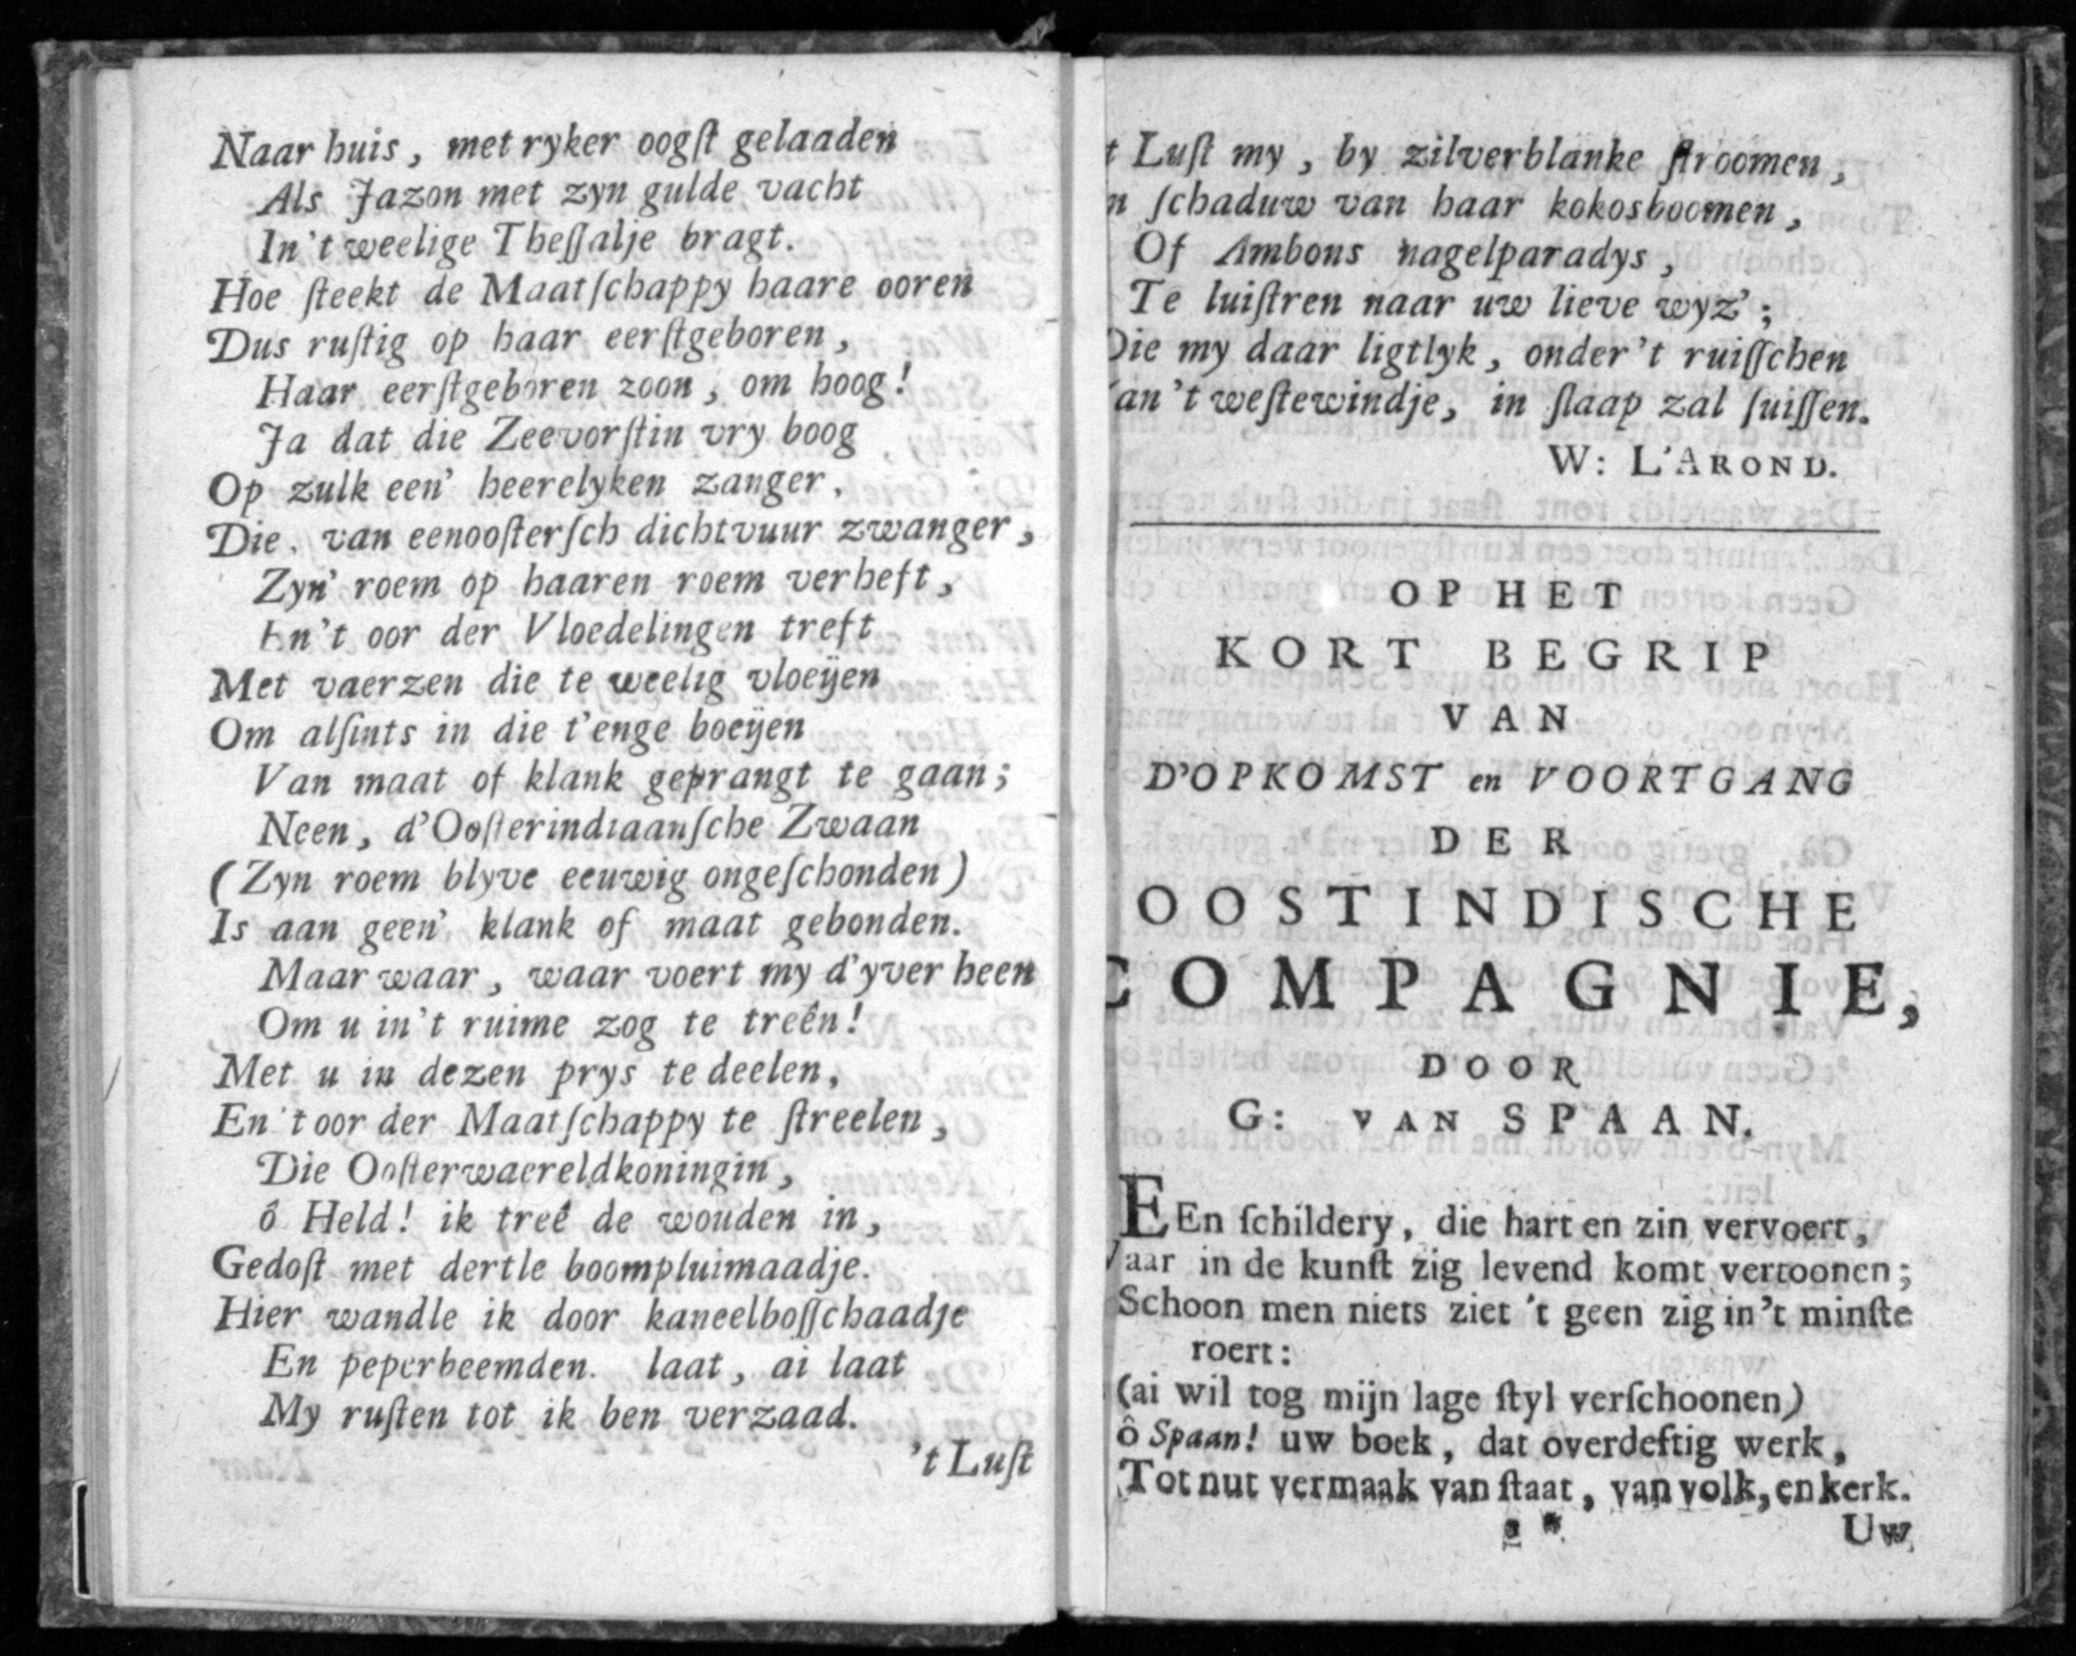 Naar huis, met ryker oogſt gelaaden
Als Jazon met zyn gulde vacht
In 't weelige Theſſalje bragt.
Hoe ſteekt de Maatſchappy haare ooren
Dus ruſtig op haar eerſtgeboren,
Haar eerſtgeboren zoon, om hoog!
Ja dat die Zeevorſtin vry boog
Op zulk een' heerelyken zanger,
Die, van een ooſterſch dichtvuur zwanger,
Zyn' roem op haaren roem verheft,
En 't oor der Vloedelingen treft
Met vaerzen die te weelig vloeijen
Om alſints in die t'enge boeijen
Van maat of klank geprangt te gaan;
Neen, d'Ooſterindiaanſche Zwaan
(Zyn roem blyve eeuwig ongeſchonden)
Is aan geen' klank of maat gebonden.
Maar waar, waar voert my d'yver heen
Om u in 't ruime zog te treên!
Met u in dezen prys te deelen,
En 't oor der Maatſchappy te ſtreelen,
Die Ooſterwaereldkoningin,
ô Held! ik treê de wouden in,
Gedoſt met dertle boompluimaadje.
Hier wandle ik door kaneelboſſchaadje
En peperbeemden. laat, ai laat
My ruſten tot ik ben verzaad.
't Luſt
t Luſt my, by zilverblanke ſtroomen,
n ſchaduw van haar kokosboomen,
Of Ambons nagelparadys,
Te luiſtren naar uw lieve wyz';
Die my daar ligtlyk, onder 't ruiſſchen
an 't weſtewindje, in ſlaap zal ſuiſſen.
W: L'AROND.
OP HET
KORT BEGRIP
VAN
D'OPKOMST en VOORTGANG
DER
OOSTINDISCHE
COMPAGNIE,
DOOR
G: VAN SPAAN.
EEn ſchildery, die hart en zin vervoert,
Waar in de kunſt zig levend komt vertoonen;
Schoon men niets ziet 't geen zig in 't minſte
roert:
(ai wil tog mijn lage ſtyl verſchoonen)
ô Spaan! uw boek, dat overdeftig werk,
Tot nut vermaak van ſtaat, van volk, en kerk.
Uw